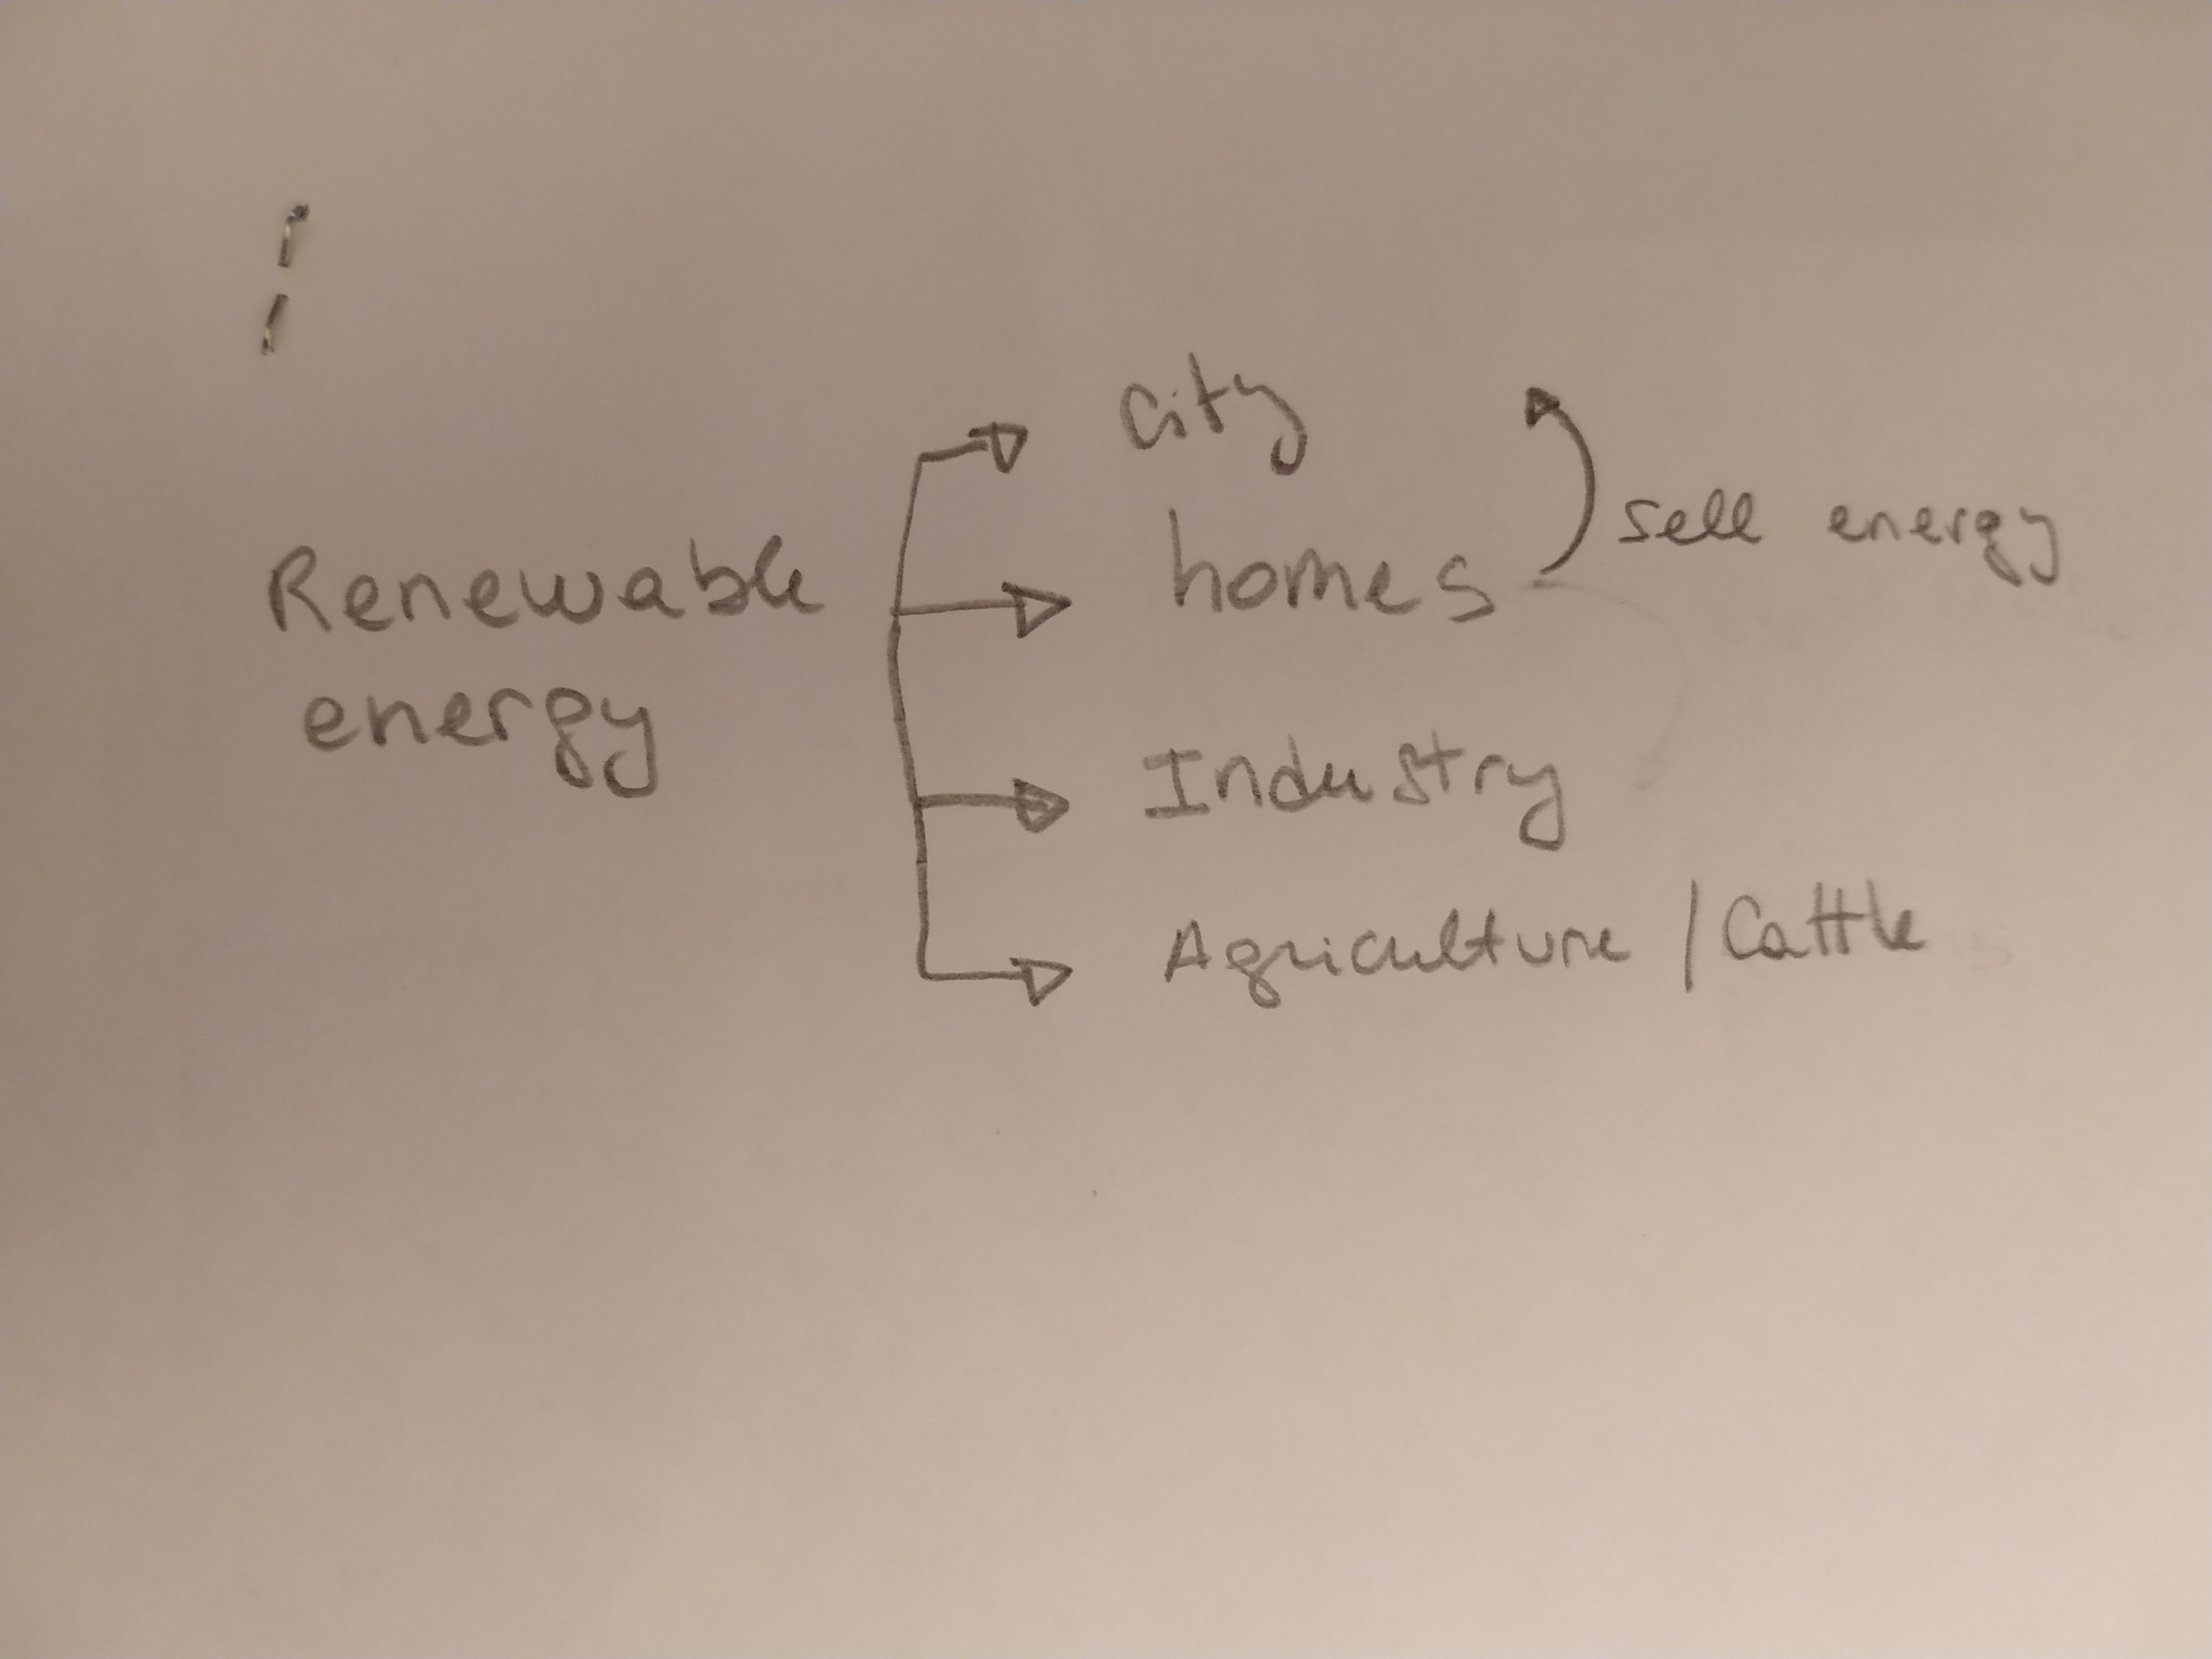 City
homes
sell energy
Renewable
energy
Industry
Agriculture / Cattle